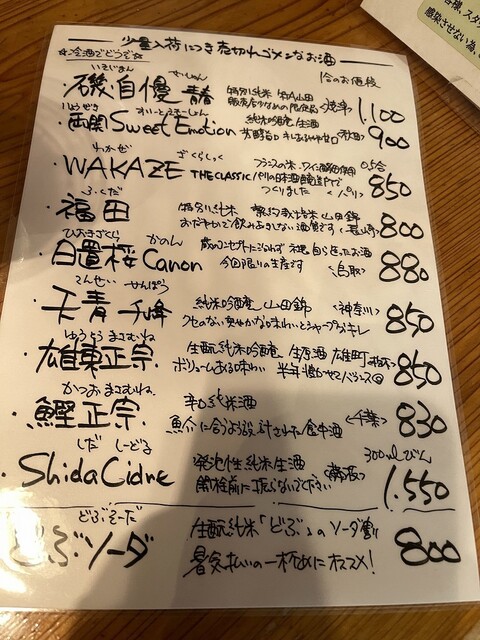 少量入荷につき売切れゴメンなお酒
☆冷酒でどうぞ☆
1合のお値段
いそじまん せいしゅん
・磯自慢 青春 特別純米 山田錦
限定品 <焼津> 1,100
りょうぜき すいーとえもーしょん
・両関 Sweet Emotion 純米吟醸 生酒
<秋田> 900
わかぜ ざくらしっく
・WAKAZE THE CLASSIC フランスの米、ワイン酵母使用 0.5合
パリの日本酒醸造所で
つくりました <パリ> 850
ふくだ
・福田 特別純米 山田錦
おだやかで飲みあきしない酒質です <長崎> 800
ひおきざくら かのん
・日置桜 Canon
今回限りの生産です <鳥取> 880
てんせい せんぽう
・天青 千峰 純米吟醸 山田錦 <神奈川>
クセのない爽やかな味わいとシャープなキレ 850
ゆうとうまさむね
・雄東正宗 生酛純米吟醸 生原酒 雄町
ボリュームある味わい 半年 バランス◎ 850
かつおまさむね
・鰹正宗 辛口純米酒
魚介に合うよう設計された食中酒 <千葉> 830
しだ しーどる
・Shida Cidre 発泡性純米生酒 <藤枝> 300mlびん
開栓前に振らないで下さい 1,550
どぶそーだ
どぶソーダ 生酛純米「どぶ」のソーダ割り
暑気払いの一杯めにオススメ! 800